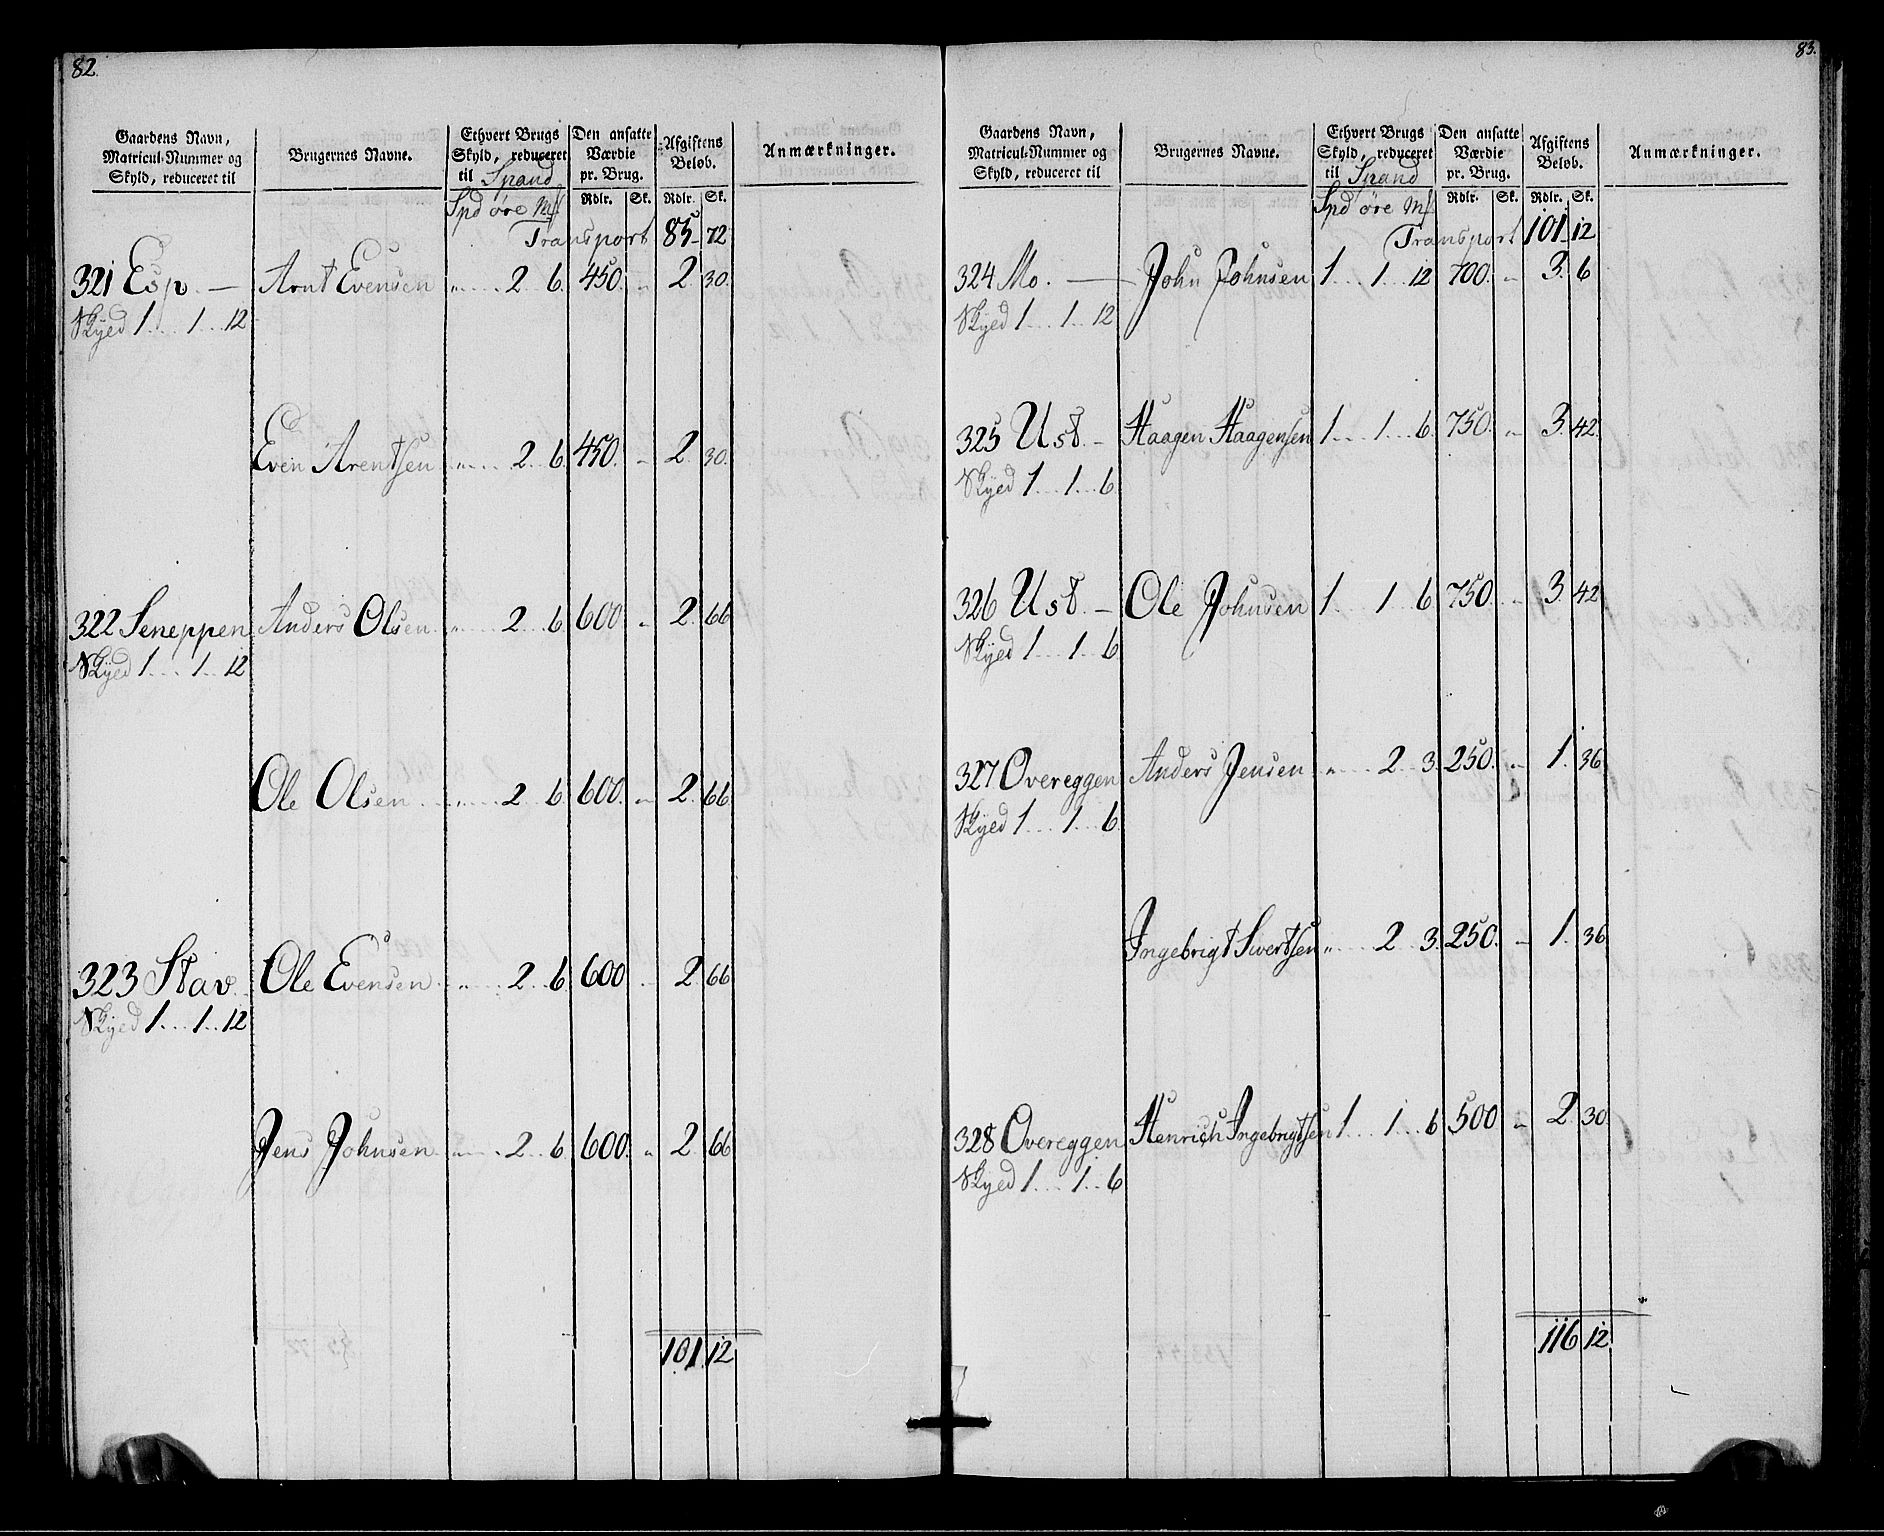 82.
Gaardens Navn, Matricul-Nummer og Skyld, reduceret til | Brugernes Navne. | Ethvert Brugs Skyld, reduceret til Spand | Den ansatte Værdie pr. Brug. | Afgiftens Beløb. | Anmærkninger.
Spd øre Mk | Rdlr. | Sk. | Rdlr. | Sk.
Transport 85 72
321 Esp. — Arnt Evensen „ 2 6. 450. „ 2. 30.
Skyed 1 1 12
Even Arentsen „ 2 6. 450. „ 2. 30.
322 Seneppen Anders Olsen „ 2 6. 600 „ 2. 66
Skyed 1 1 12
Ole Olsen „ 2 6. 600. „ 2. 66
323 Stav Ole Evensen „ 2 6. 600 „ 2. 66
Skyed 1 1 12
Jens Johnsen „ 2 6. 600. „ 2. 66
101. 12
83.
Gaardens Navn, Matricul-Nummer og Skyld, reduceret til | Brugernes Navne. | Ethvert Brugs Skyld, reduceret til Spand | Den ansatte Værdie pr. Brug. | Afgiftens Beløb. | Anmærkninger.
Spd øre Mk | Rdlr. | Sk. | Rdlr. | Sk.
Transport 101 12
324 Mo. — John Johnsen 1 1 12 700. „ 3. 6
Skyed 1 1 12
325 Ust. — Haagen Haagensen 1 1 6. 750. „ 3. 42.
Skyed 1 1 6
326 Ust. — Ole Johnsen 1 1 6 750. „ 3. 42
Skyed 1 1 6
327 Overeggen Anders Jensen „ 2 3. 250. „ 1. 36
Skyed 1 1 6.
Ingebrigt Sivertsen „ 2 3. 250. „ 1. 36
328 Overeggen Henrich Ingebrigtsen 1 1 6 500 „ 2. 30
Skyed 1 1 6
116 12